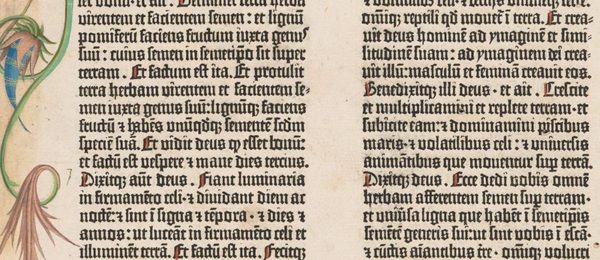 virentem et facientem semen : et lignū
pomiferū faciens fructum iuxta genus
suū : cuius semen in semetipō sit super
terram . Et factum est ita . Et protulit
terra herbam virentem et facientem se-
men iuxta genus suū : lignūqꝫ faciens
fructū ⁊ habēs unūqdqꝫ sementē scdm
speciē suā . Et vidit deus ꝙ esset bonū :
et factū est vespere ⁊ mane dies tercius .
Dixitqꝫ aūt deus . Fiant luminaria
in firmamēto celi · ⁊ dividant diem ac
noctē : ⁊ sint ī signa ⁊ tēpora · ⁊ dies ⁊
annos : ut luceāt in firmamēto celi et
illuminent terrā . Et factū est ita . Fecitqꝫ
omīqꝫ reptili qd movetʳ ī terra . Et crea-
vit deus hominē ad ymaginē et simi-
litudinē suam : ad ymaginem dei crea-
vit illū : masculū et feminā creavit eos .
Benedixitqꝫ illis deus · et ait . Crescite
et multiplicamini et replete terram · et
subicite eam : ⁊ dominamini piscibus
maris · ⁊ volatilibus celi : ⁊ universis
animātibus que moventur suꝑ terrā .
Dixitqꝫ deus . Ecce dedi vobis omnē
herbam afferentem semen suꝑ terram ·
et univsa ligna que habēt ī semetipis
sementē generis sui : ut sint vobis ī escā ·
⁊ cūctis aīantibus t̄re · omīqꝫ volucri